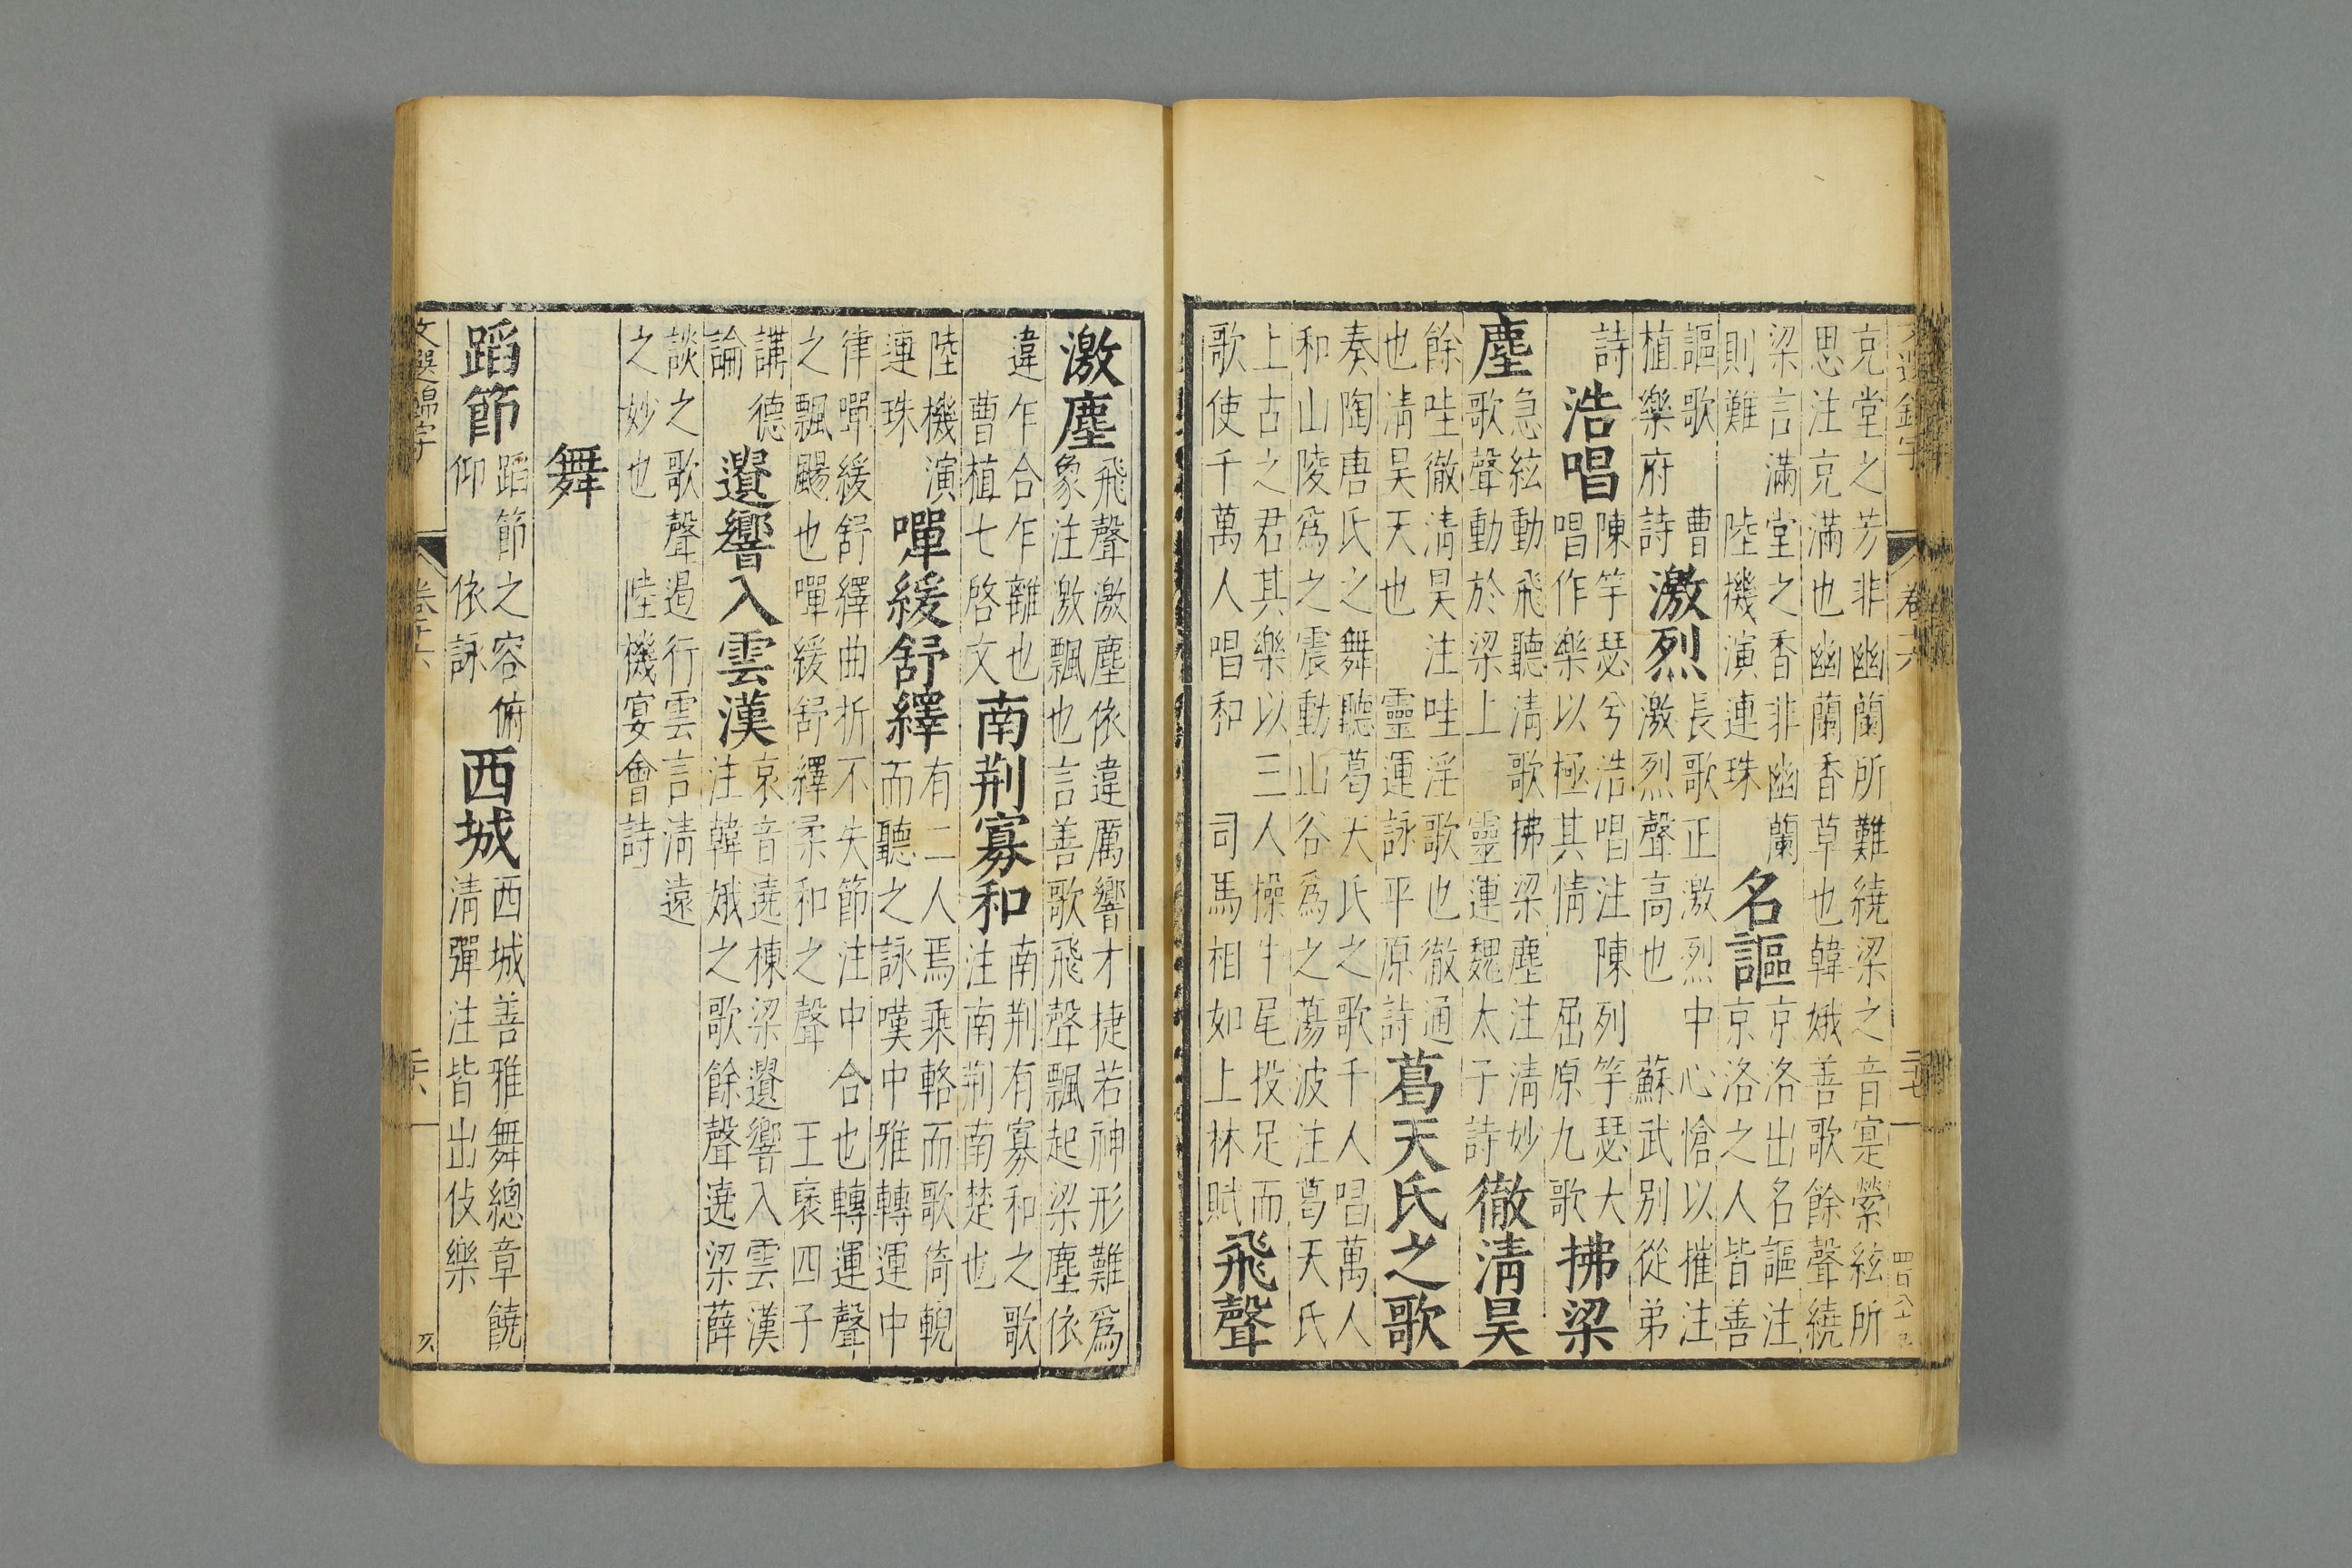 充堂之芳非幽蘭所難繞梁之音寔縈絃所
思注充滿也幽蘭香草也韓娥善歌餘聲繞
梁言滿堂之香非幽蘭
則難　陸機演連珠
名謳
京洛出名謳注
京洛之人皆善
謳歌　曹
植樂府詩
激烈
長歌正激烈中心愴以摧注
激烈聲高也　蘇武別從弟
詩
浩唱
陳竽瑟兮浩唱注陳列竽瑟大
唱作樂以極其情　屈原九歌
拂梁
塵
急絃動飛聽清歌拂梁塵注清妙
歌聲動於梁上　靈運魏太子詩
徹清昊
餘哇徹清昊注哇淫歌也徹通
也清昊天也　靈運詠平原詩
葛天氏之歌
奏陶唐氏之舞聽葛天氏之歌千人唱萬人
和山陵爲之震動山谷爲之蕩波注葛天氏
上古之君其樂以三人操牛尾投足而
歌使千萬人唱和　司馬相如上林賦
飛聲
激塵
飛聲激塵依違厲響才捷若神形難爲
象注激飄也言善歌飛聲飄起梁塵依
違乍合乍離也
曹植七啓文
南荆寡和
南荆有寡和之歌
注南荆南楚也
陸機演
連珠
嘽緩舒繹
有二人焉乘輅而歌倚輗
而聽之詠嘆中雅轉運中
律嘽緩舒繹曲折不失節注中合也轉運聲
之飄颺也嘽緩舒繹柔和之聲　王褒四子
講德
論
遺響入雲漢
哀音遶棟梁遺響入雲漢
注韓娥之歌餘聲遶梁薛
談之歌聲遏行雲言清遠
之妙也　陸機宴會詩
舞
蹈節
蹈節之容俯
仰　依詠
西城
西城善雅舞總章饒
清彈注皆出伎樂
文選錦字